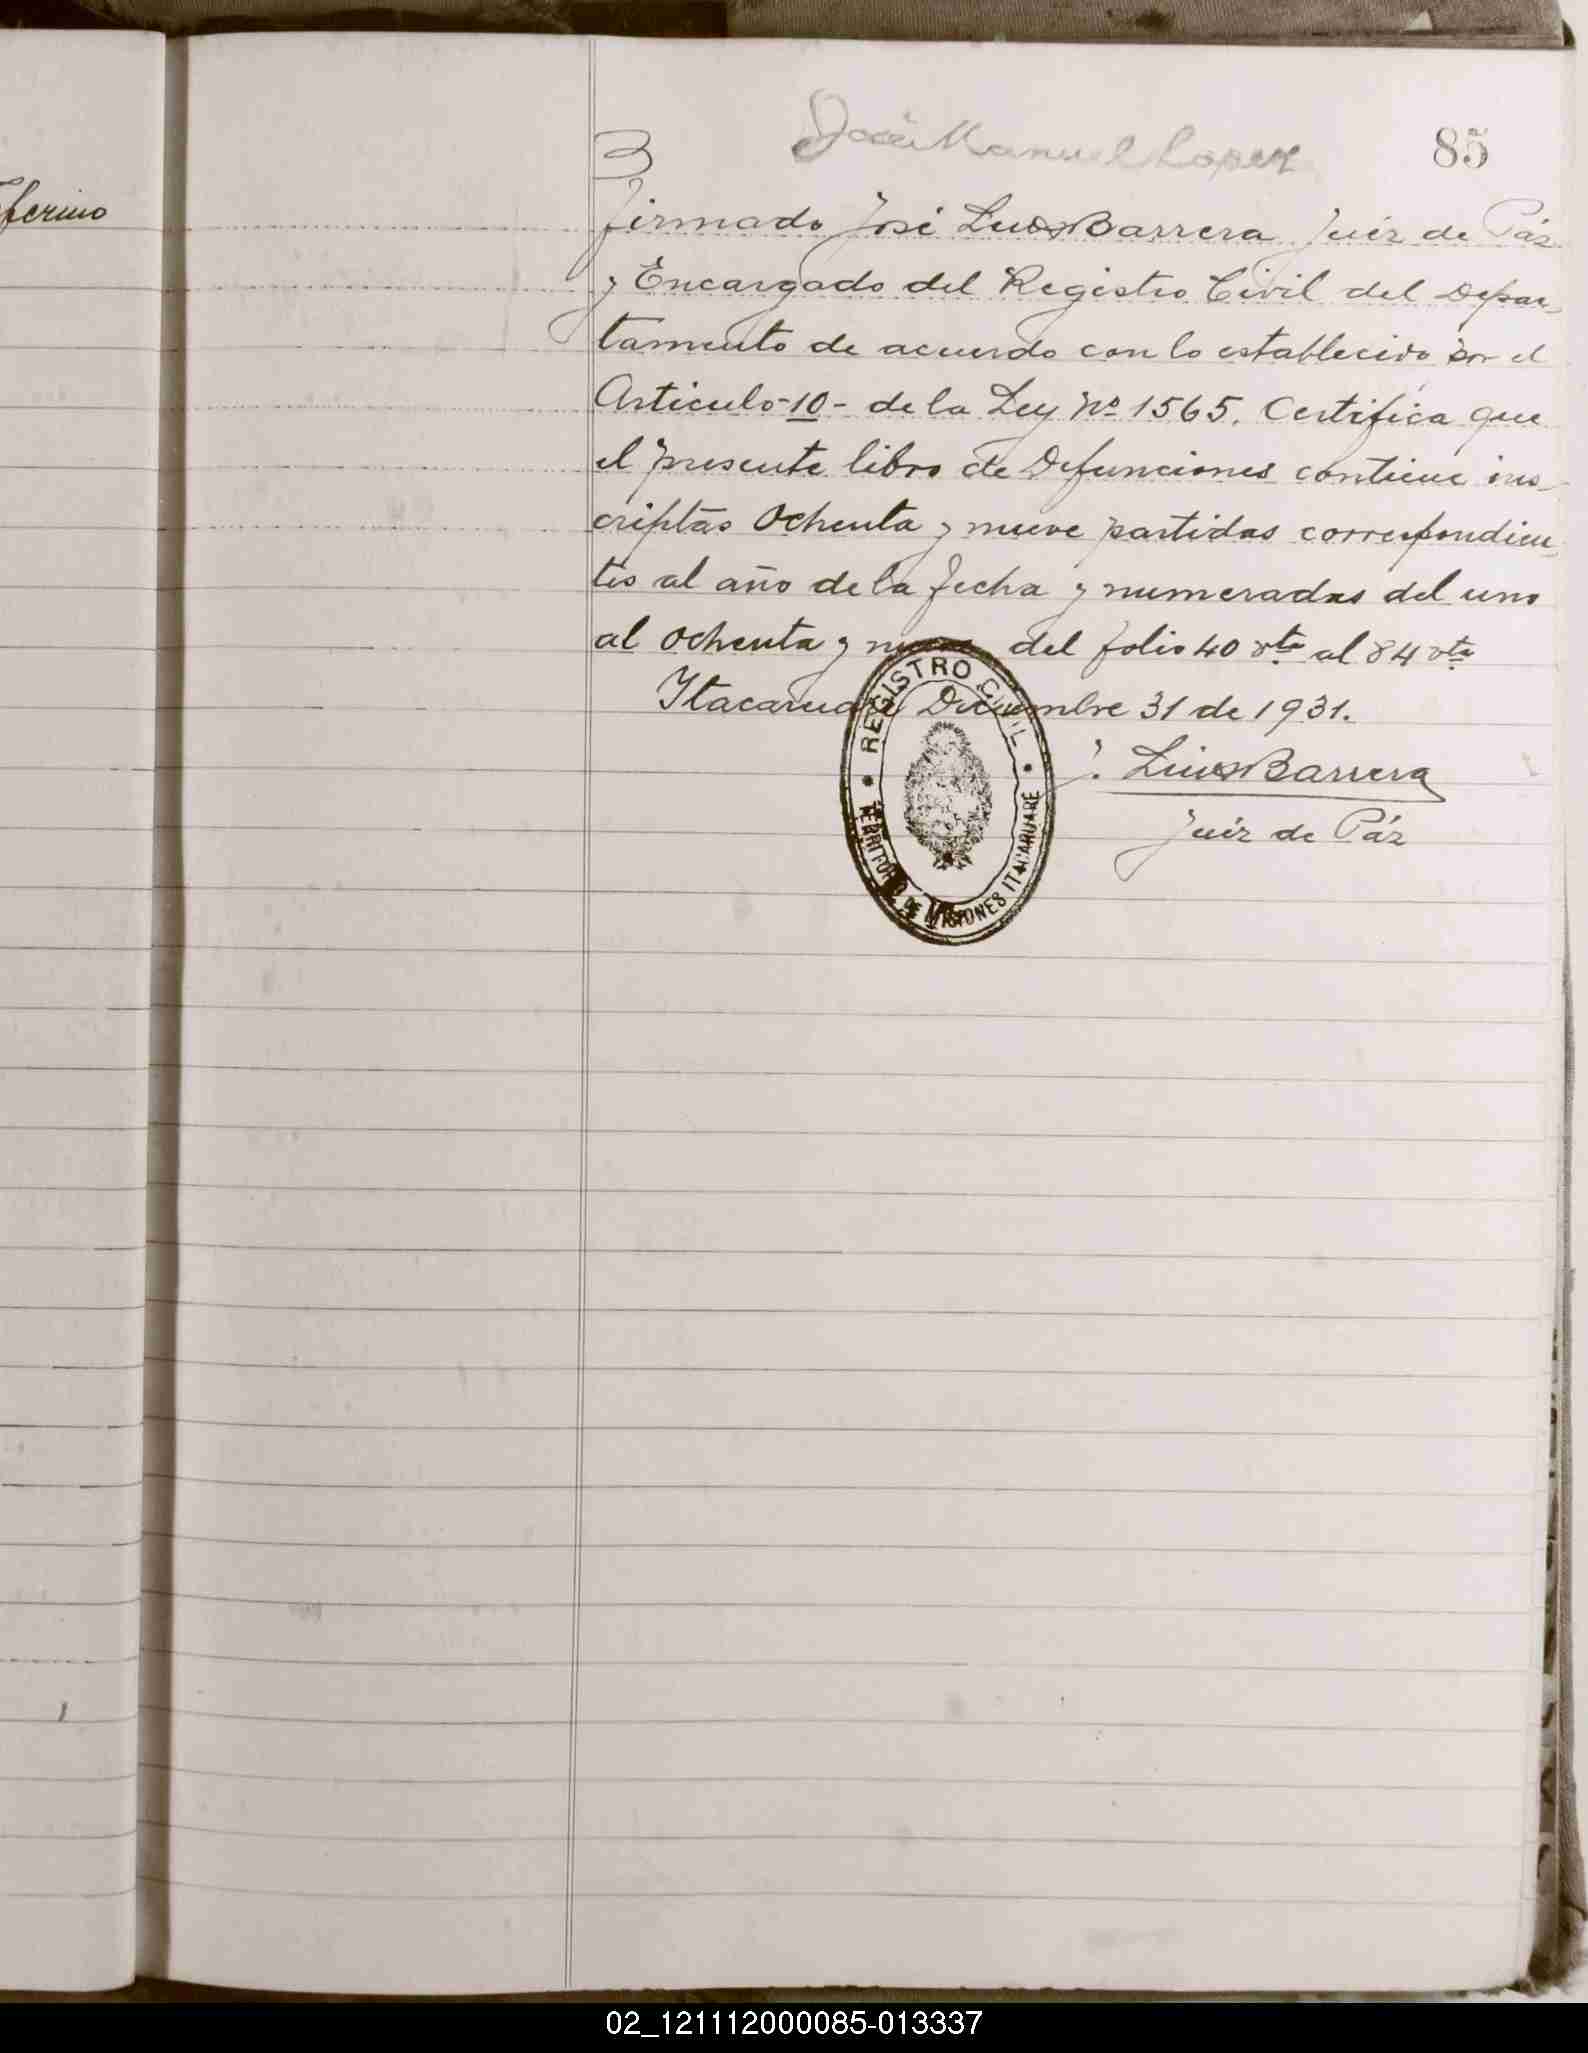 ferino
José Manuel Lopez
85
3
firmado José Luis Barrera Juéz de Páz
y Encargado del Registro Civil del Depar-
tamento de acuerdo con lo establecido por el
Articulo -10- de la Ley Nº 1565. Certifica que
el presente libro de Defunciones contiene ins-
criptas Ochenta y nueve partidas correspondien-
tes al año de la fecha y numeradas del uno
al Ochenta y nueve del folio 40 vta al 84 vta
Itacaruaré Diciembre 31 de 1931.
J. Luis Barrera
Juéz de Páz
REGISTRO CIVIL
TERRITORIO DE MISIONES ITACARUARÉ
02_121112000085-013337